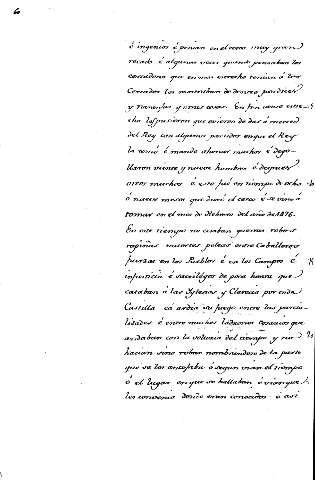 6
é ingenios é ponian en el cerco muy gran
recado é algunas veces quando pensaban los
corredores que en mas estrecho tenian á los
Cercados los mostraban de dentro perdices
y naranjas y otras cosas. En fin como estre
cha lo pusieron que ovieron de dar á merced
del Rey con algunos partidos en que el Rey
la tomó é mandó ahorcar muchos é dego
llaron veinte y nueve hombres é despues
otros muchos é este fué en tiempo de ocho
ó nueve meses que duró el cerco é se vino á
tomar en el mes de Febrero del año de 1476.
En este tiempo no cesaban guerras robos
rapiñas muertes peleas entre Caballeros
fuerzas en los Pueblos é en los Campos é
injusticia é sacrilegos de poca honra que
cataban á las Iglesias y Clerecia por toda
Castilla cá ardia su fuego entre las parcia
lidades é entre muchos ladrones cosarios que
andaban con la voltaria del tiempo y no
hacian sino robar nombrandose de la parte
que se les antojaba ó segun vian el tiempo
ó el lugar en que se hallaban é vian que
les convenia donde eran conocidos é asi